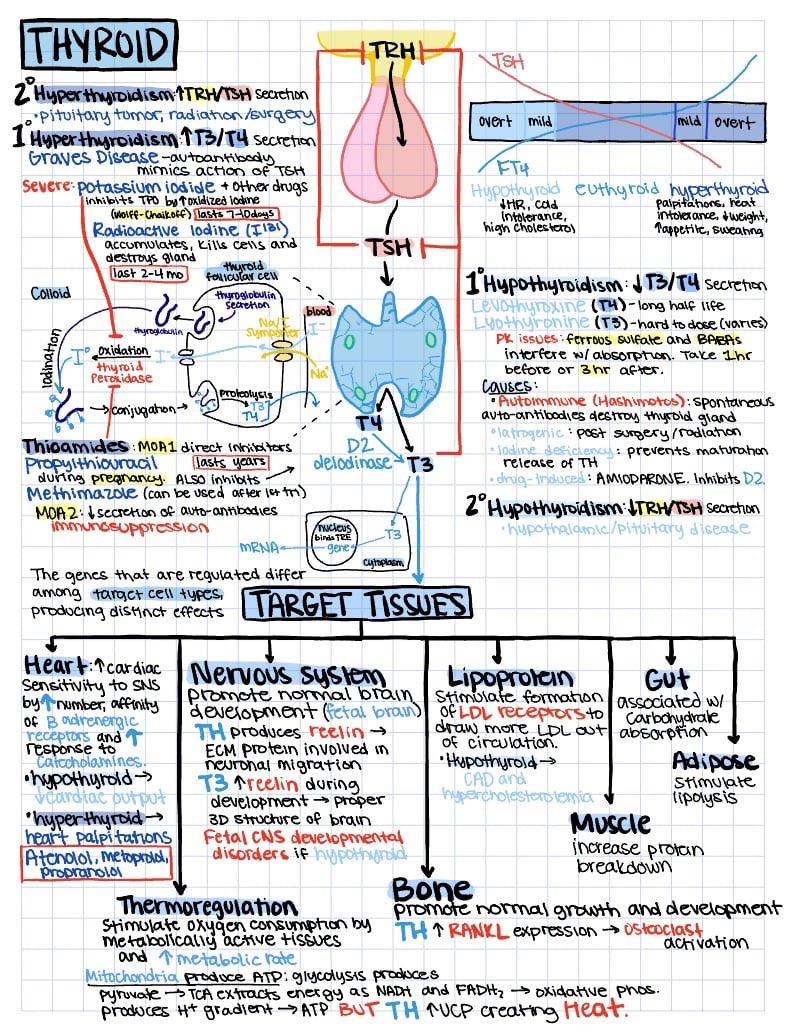 THYROID
2° Hyperthyroidism: ↑TRH/TSH secretion
•pituitary tumor, radiation/surgery
1° Hyperthyroidism: ↑T3/T4 secretion
Graves Disease -autoantibody
mimics action of TSH
Severe: potassium iodide + other drugs
inhibits TPO by ↑oxidized Iodine
(Wolff-Chaikoff) lasts 7-10days
Radioactive Iodine (I131)
accumulates, kills cells and
destroys gland
last 2-4 mo
TRH
TSH
TSH
overt mild mild overt
FT4
Hypothyroid euthyroid hyperthyroid
↓HR, cold
intolerance,
high cholesterol
palpitations, heat
intolerance, ↓weight,
↑appetite, sweating
Colloid
thyroid
follicular cell
thyroglobulin
secretion
thyroglobulin
Na/I
symporter
blood
I⁻
Na⁺
Iodination
I°
oxidation
I⁻
thyroid
Peroxidase
→conjugation→
Proteolysis
T3
T4
T4
D2
deiodinase
T3
1° Hypothyroidism: ↓T3/T4 secretion
Levothyroxine (T4) -long half life
Lyothyronine (T3) -hard to dose (varies)
PK issues: ferrous sulfate and BARAs
interfere w/ absorption. Take 1hr
before or 3hr after.
Causes:
•Autoimmune (Hashimotos): spontaneous
auto-antibodies destroy thyroid gland
•Iatrogenic: post surgery/radiation
•Iodine deficiency: prevents maturation
release of TH
•drug-induced: AMIODARONE. Inhibits D2
2° Hypothyroidism: ↓TRH/TSH secretion
•hypothalamic/pituitary disease
Thioamides: MOA1 direct inhibitors
Propylthiouracil lasts years
during pregnancy. ALSO inhibits
Methimazole (can be used after 1st tri)
MOA2: ↓secretion of auto-antibodies
immunosuppression
nucleus
binds TRE
gene
T3
mRNA
cytoplasm
The genes that are regulated differ
among target cell types,
producing distinct effects
TARGET TISSUES
Heart: ↑cardiac
sensitivity to SNS
by ↑number, affinity
of B adrenergic
receptors and ↑
response to
Catcholamines.
•hypothyroid→
↓cardiac output
•hyperthyroid→
heart palpitations
Atenolol, metoprolol,
propranolol
Nervous system
promote normal brain
development (fetal brain)
TH produces reelin →
ECM protein involved in
neuronal migration
T3 ↑reelin during
development → proper
3D structure of brain
Fetal CNS developmental
disorders if hypothyroid
Lipoprotein
Stimulate formation
of LDL receptors to
draw more LDL out
of circulation.
•Hypothyroid→
CAD and
hypercholesterolemia
Gut
associated w/
Carbohydrate
absorption
Adipose
Stimulate
lipolysis
Muscle
increase protein
breakdown
Thermoregulation
Stimulate oxygen consumption by
metabolically active tissues
and ↑metabolic rate
Bone
promote normal growth and development
TH ↑ RANKL expression → osteoclast
activation
Mitochondria produce ATP: glycolysis produces
pyruvate → TCA extracts energy as NADH and FADH₂ → oxidative phos.
produces H⁺ gradient → ATP BUT TH ↑UCP creating Heat.